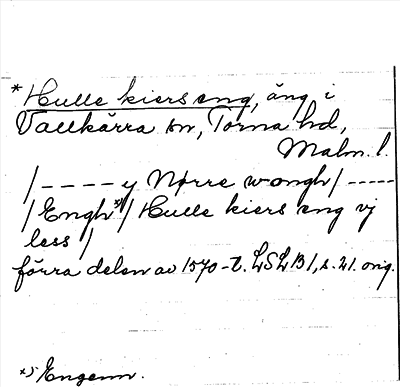 * Hulle kiers eng, äng i
Vallkärra sn, Torna hd,
Malm. l.
/ - - - - y Nørre wongh / - - - - -
/ Engh x) / Hulle kiers eng vj
less /
förra delen av 1570-t. LSLB 1, s. 21. orig.
x) Engenn.